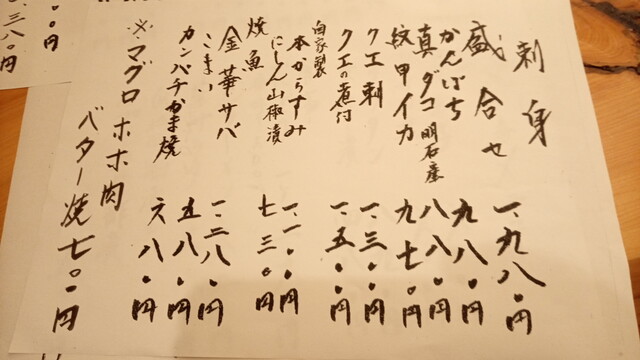 刺身
盛合セ 一、九八〇円
かんぱち 九八〇円
真ダコ 明石産 八八〇円
紋甲イカ 九七〇円
クエ刺 一、三〇〇円
クエの煮付 一、五〇〇円
自家製
本からすみ 一、一〇〇円
にしん山椒漬 七三〇円
焼魚
金華サバ 一、三八〇円
こまい 五八〇円
カンパチかま焼 六八〇円
※マグロホホ肉
バター焼 七〇〇円
〇〇円
三八〇円